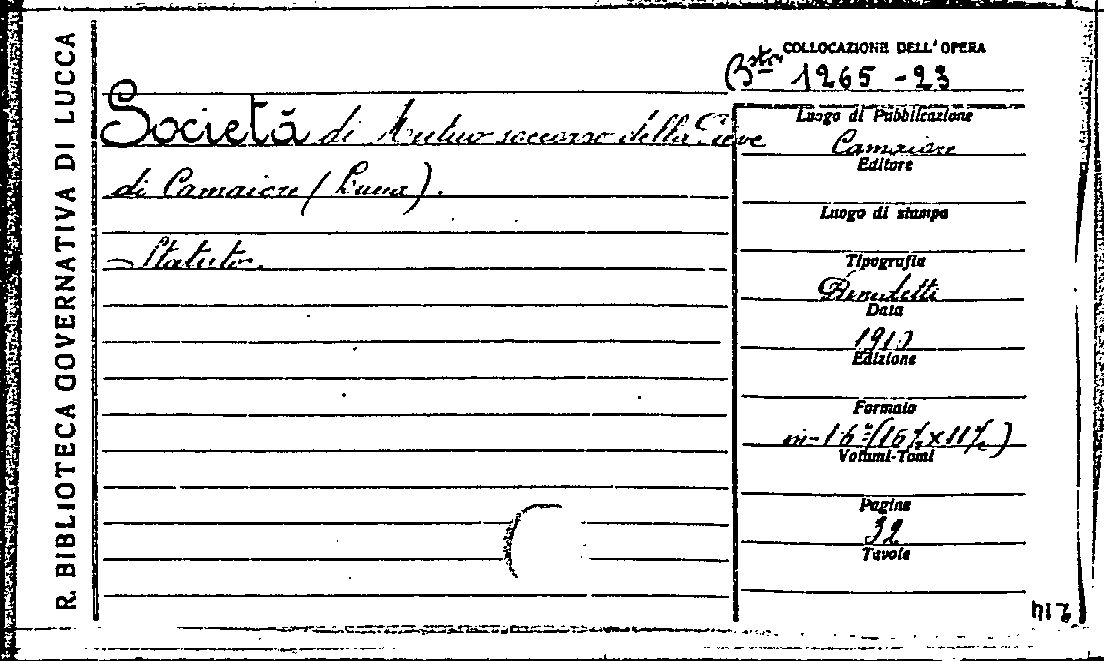 R. BIBLIOTECA GOVERNATIVA DI LUCCA
COLLOCAZIONE DELL'OPERA
1265-23
Società di Mutuo soccorso della Pieve
di Camaiore (Lucca).
- Statuto.
Luogo di Pubblicazione
Camaiore
Editore
Luogo di stampa
Tipografia
Benedetti
Data
Edizione
Formato
in-16°
Volumi-Tomi
Pagine
32
Tavole